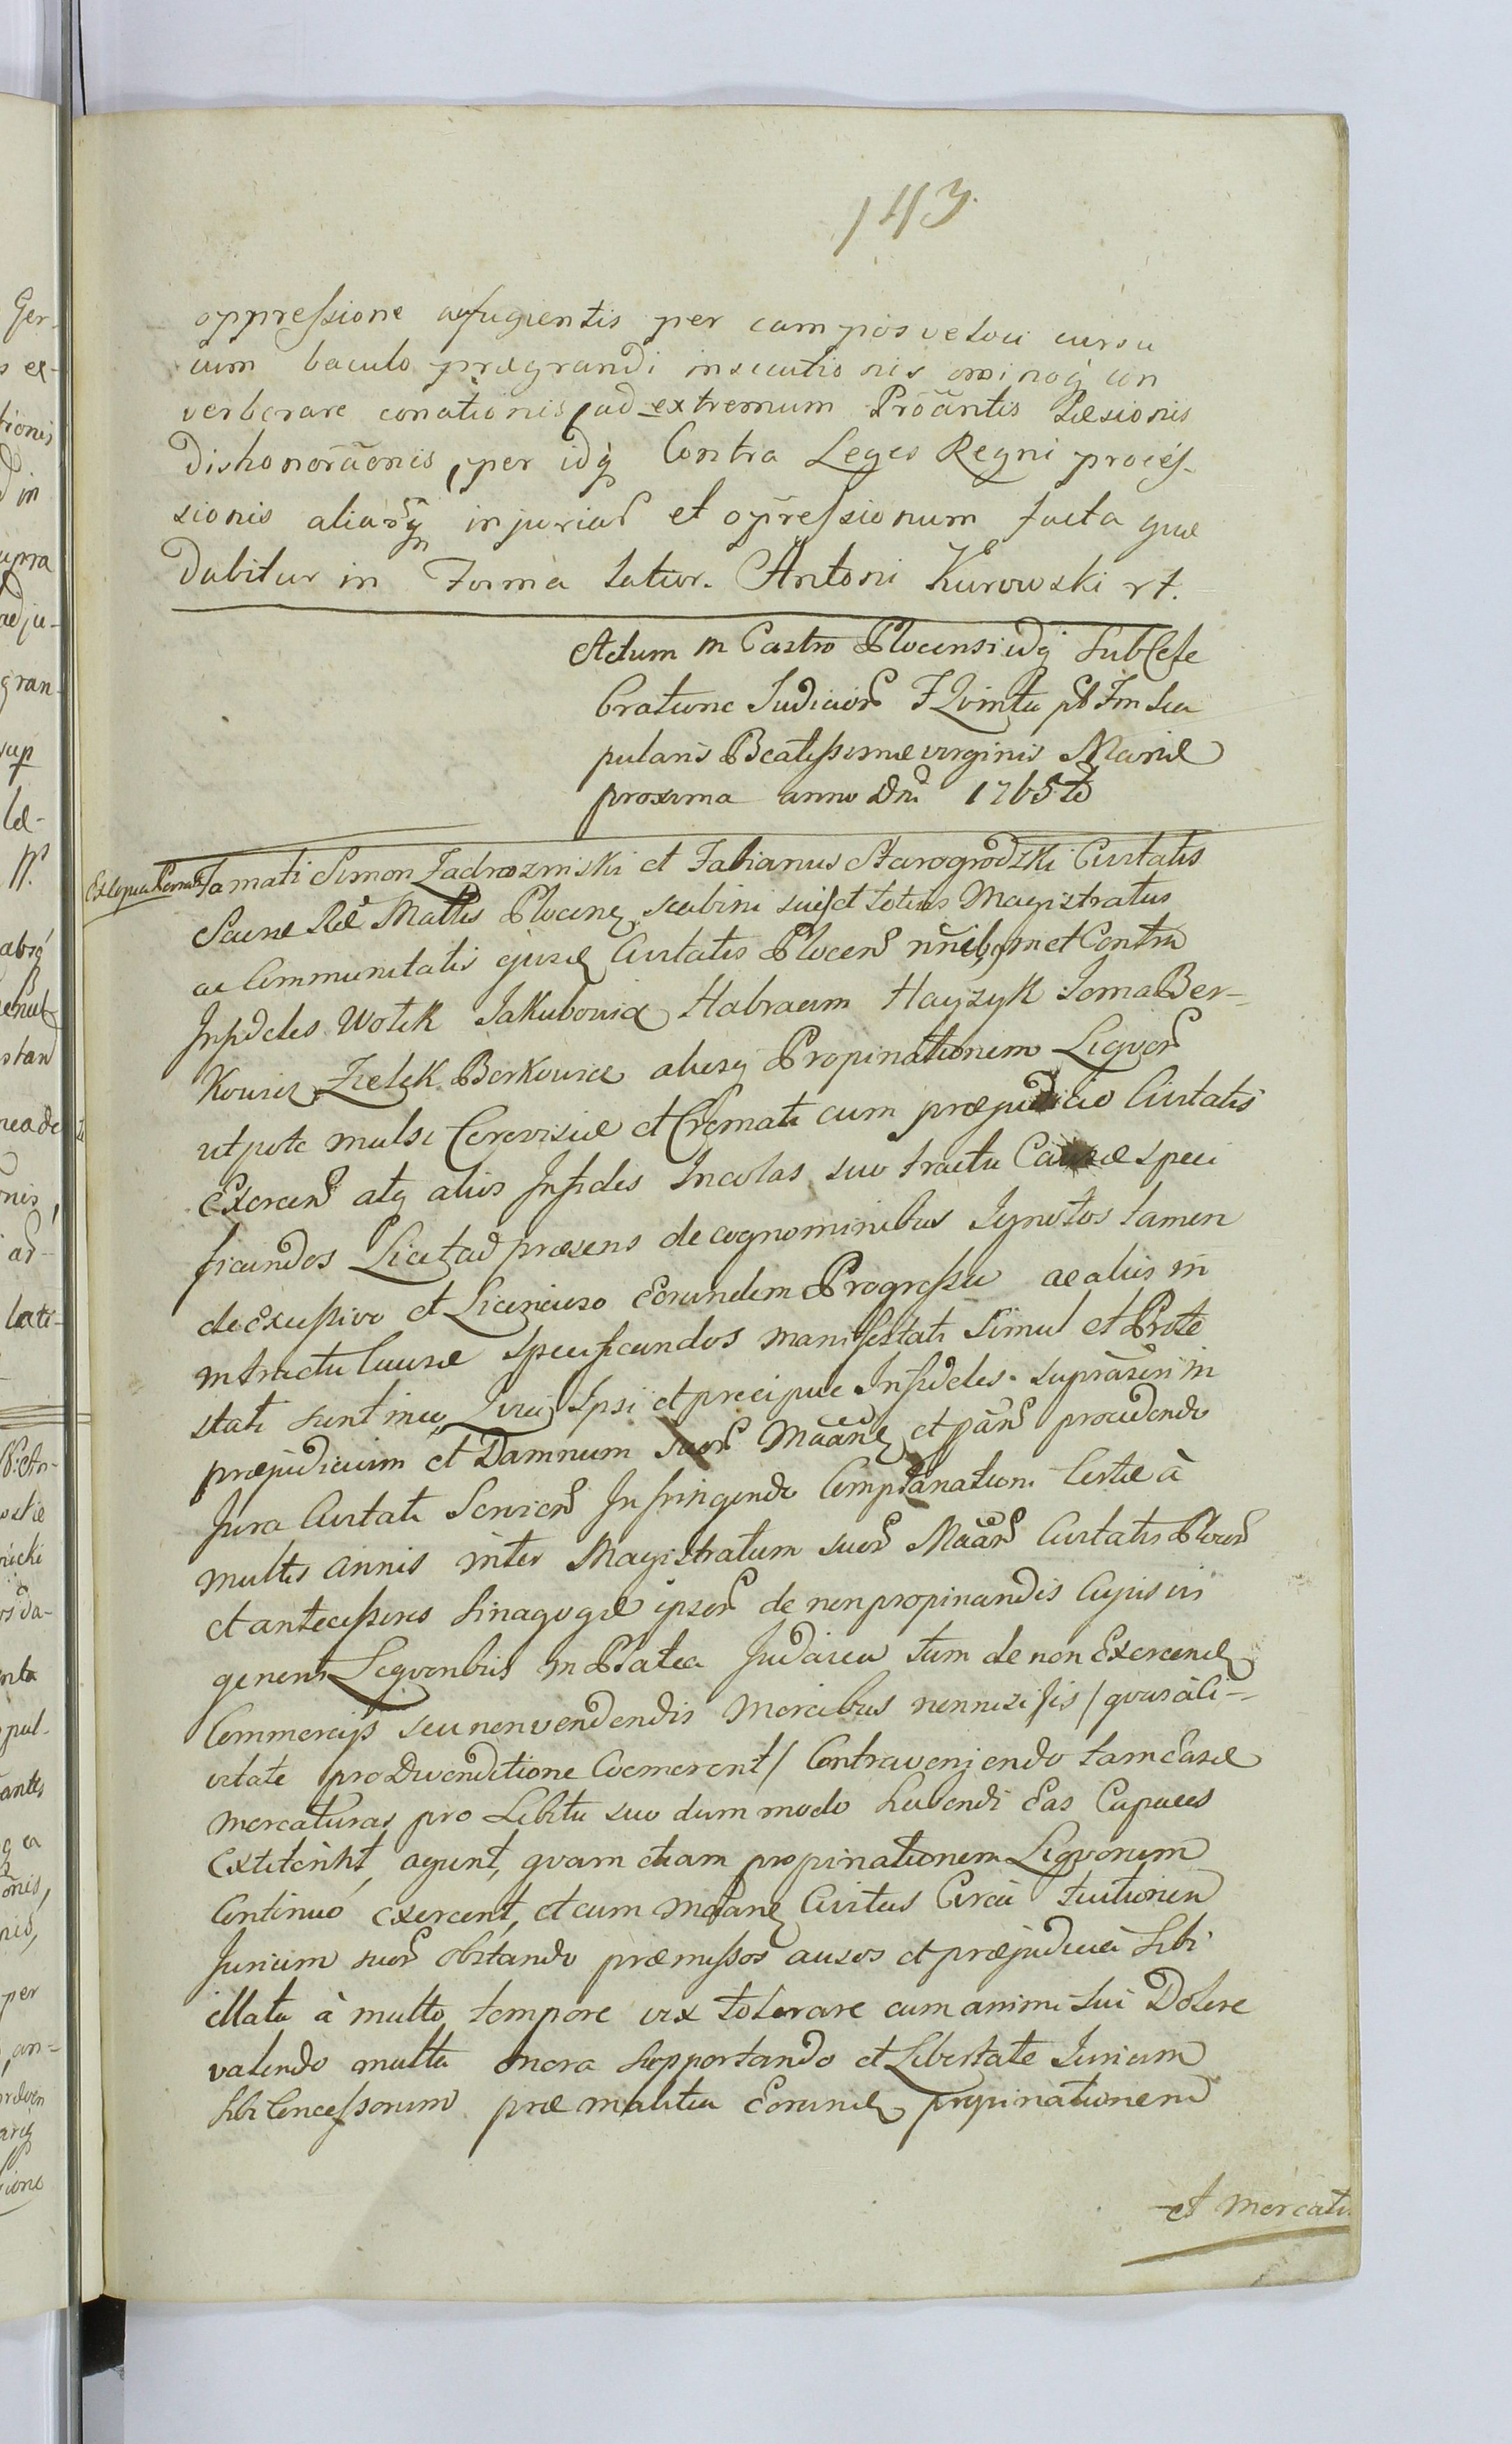 143.
oppressione aufugientis per campos veloci cursu
cum baculo prægrandi insecutionis ominoq́ con
verberare conationis, ad extremum Prõantis Læsionis
dishonorãonis, per idq́ Contra Leges Regni proces-
sionis aliarq́ injuriar et opressionum facta quæ
dabitur in Forma latior. Antoni Kurowski rt.
Actum in Castro Plocensi idq́ sub Cele
bratione Judicior F Quinta pt Fm Sca
pularis Beatissimæ virginis Mariæ
proxima anno Dni 1765to
Famati Simon Zadrozminski et Fabianus Starogrodzki Civitatis
Sacræ Ræ Mattis Plocens scabini sui et totius Magistratus
ac Communitatis ejusd Civitatis Plocens nnibq in et Contra
Infideles Wolek Jakubowicz Habraam Hayzyk Joma Ber-
kowicz Zielek Berkowicz aliosq Propinationem Liqvor
utpote mulsi Cerevisiæ et Cremati cum præjudicio Civitatis
Exercen atq alios Infideles Incolas suo tractu Causæ speci
ficandos Licet ad præsens de cognominibus Ignotos tamen
de Excessivo et Licencioso Eorundem Progressu ac aliis in
in tractu Causæ specificandos manifestati simul et Prote
stati sunt in eo Quia Ipsi et precipue Infideles suprascri in
præjudicium et Damnum suor Maan et parn procedendo
Jura Civitati Servien Infringendo Complanationi Certæ à
multis annis inter Magistratum suor Maan Civitatis Plocen
et antecessores Sinagogæ ipsor de non propinandis Cujusvis
generis Liqvoribus in Platea Judaica tum de non Exercend
Commercijs seu non vendendis Mercibus nonnisi sis / qvas à Ci-
vitate pro Divenditione Coemerent / Contraveniendo tam Easd
mercaturas pro Libitu suo dum modo habendi Eas Capaces
Extiterint, agunt, qvam etiam propinationem Liqvorum
Continuó exercent, et cum Maan Civitas Circa tuitionem
Jurium suor obstando præmissos ausos et præjudicia sibi
illata à multo tempore vix tolerare cum animi sui Dolore
valendo multa onera supportando et Libertate Jurium
sibi Concessorum præ malitia Eorund propinationem
et mercatu